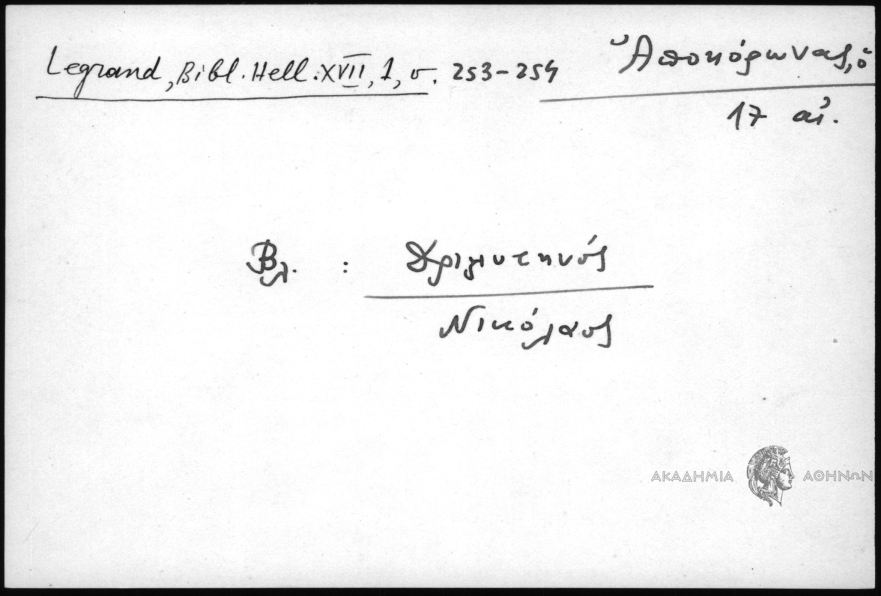 Legrand, Bibl. Hell. XVII, 1, σ. 253-254
Ἀποκόρωνας, ὁ
17 αἰ.
Βλ. : Δριμυτηνός
Νικόλαος
ΑΚΑΔΗΜΙΑ ΑΘΗΝΩΝ